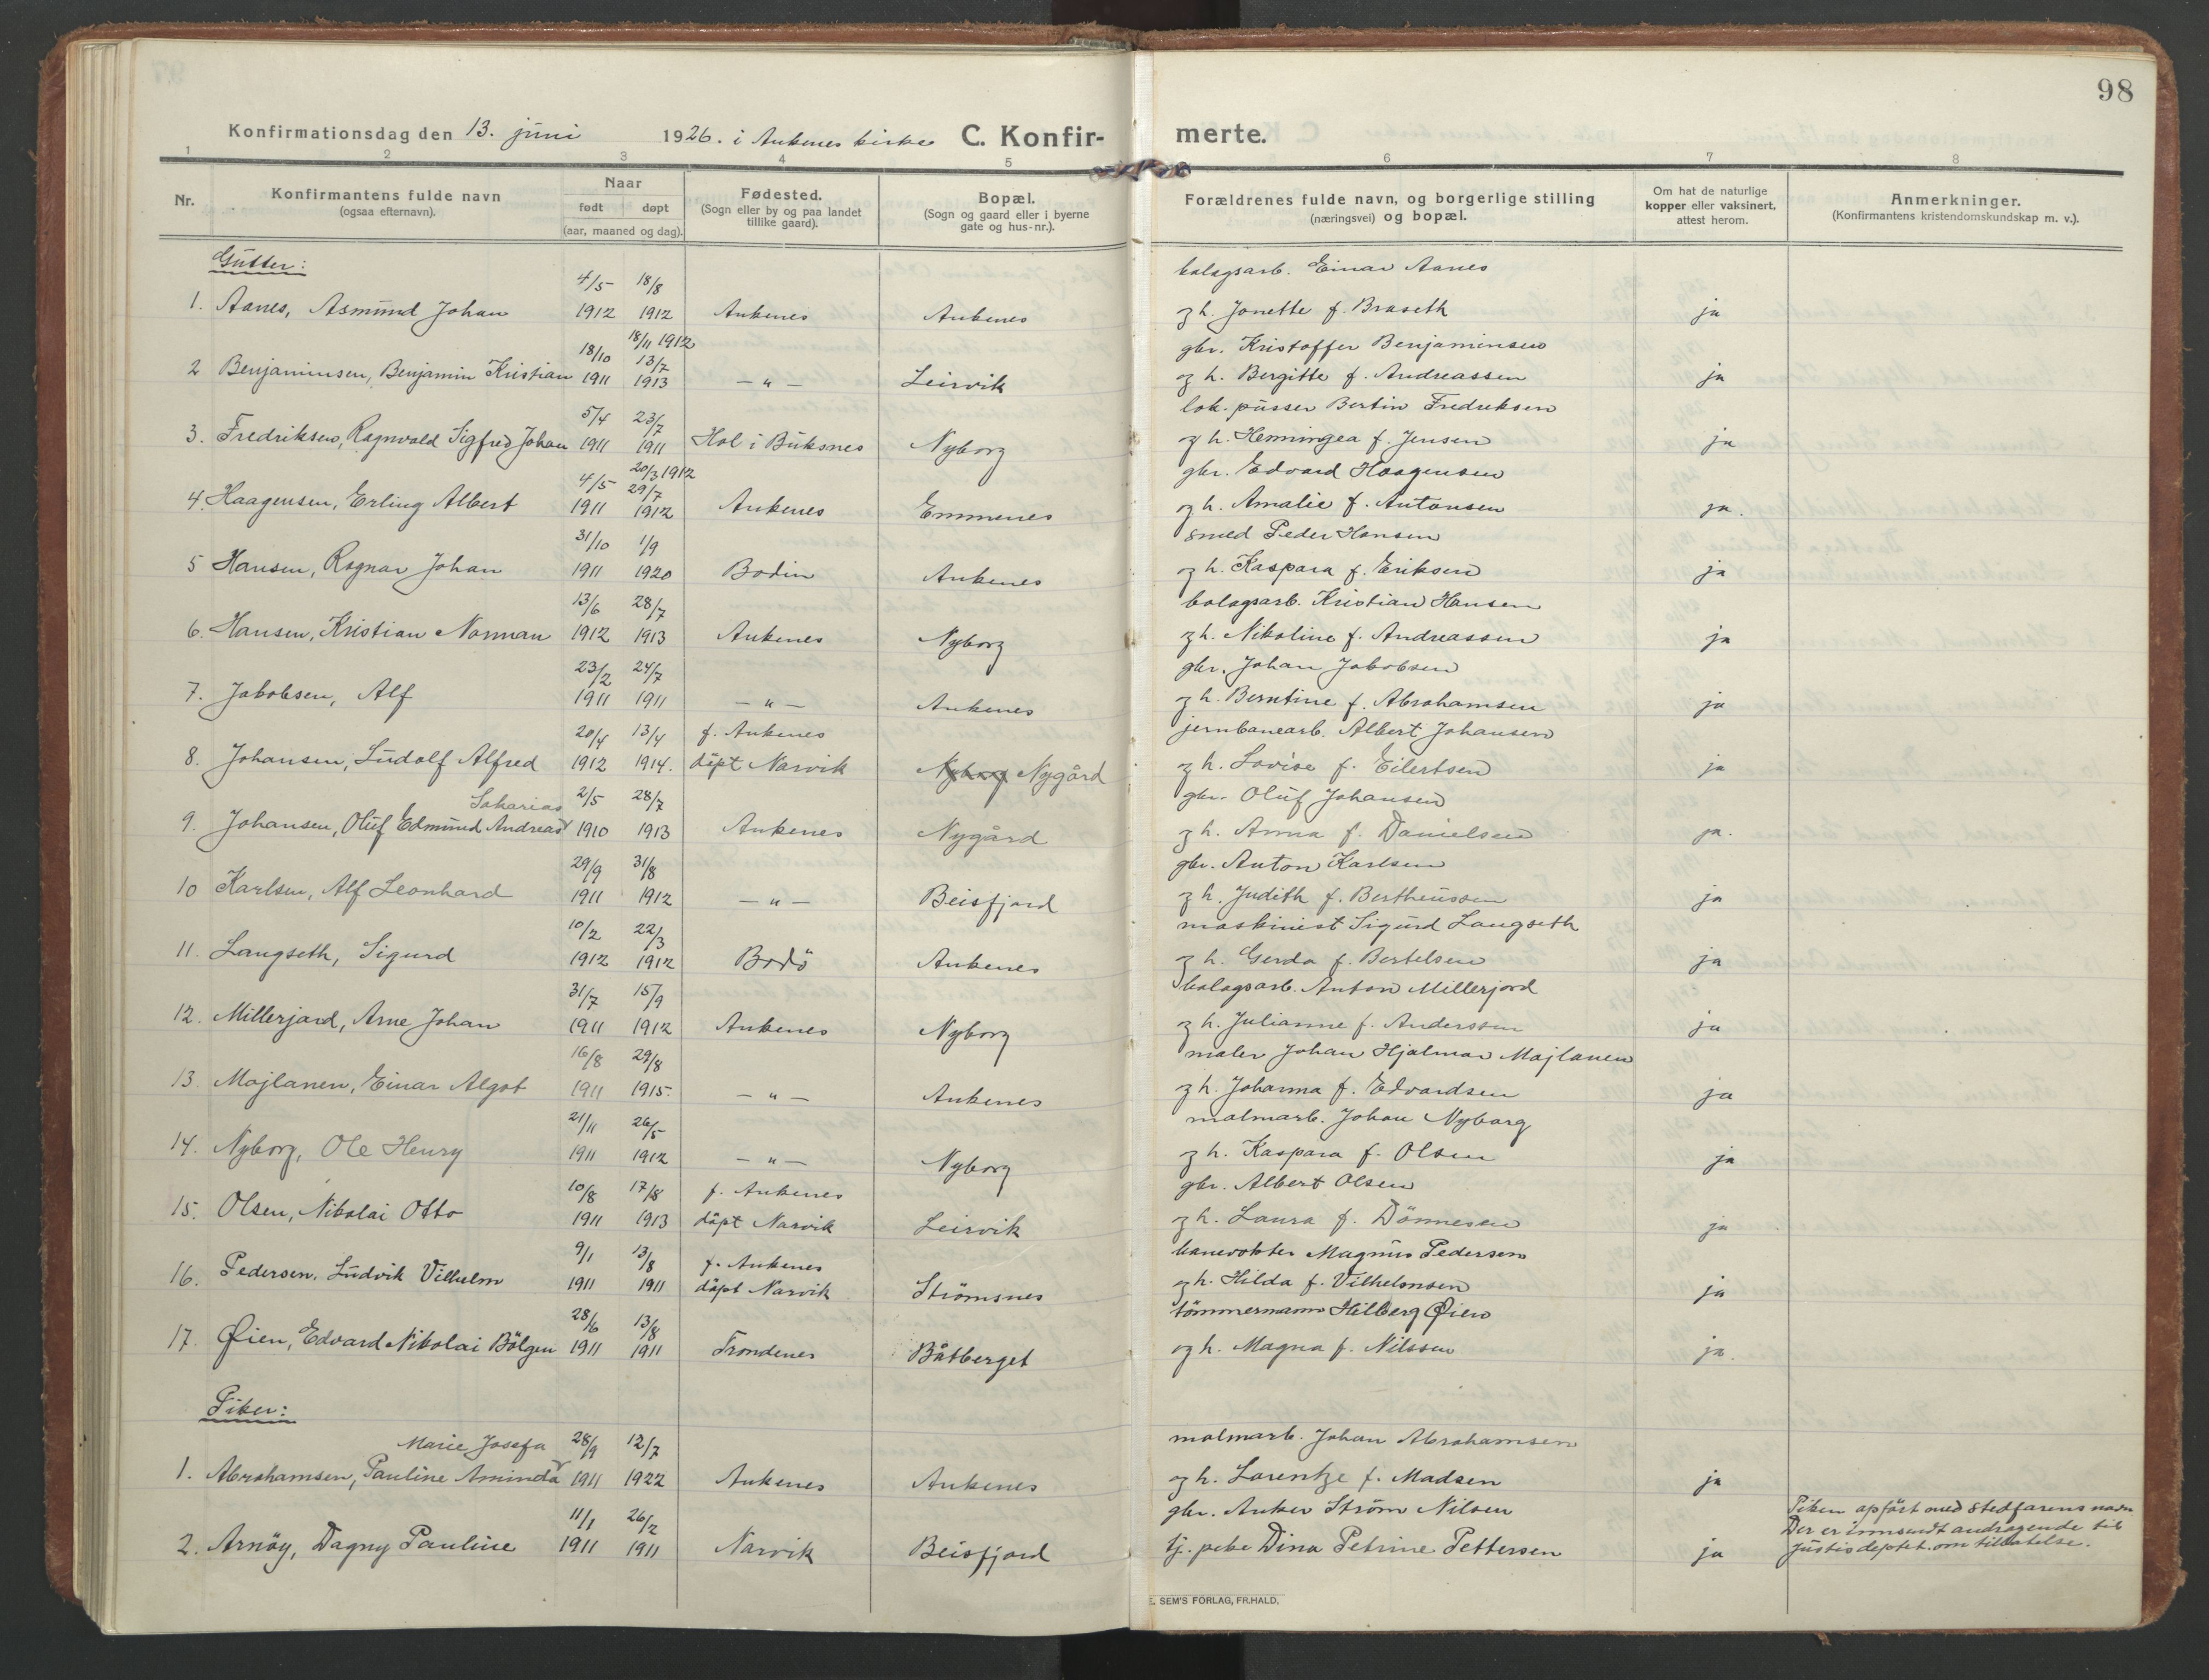 98
Konfirmationsdag den 13. juni 1926. i Ankenes kirke C. Konfir- merte.
1 2 3 4 5 6 7 8
Nr. Konfirmantens fulde navn (ogsaa efternavn). Naar født døpt (aar, maaned og dag). Fødested. (Sogn eller by og paa landet tillike gaard). Bopæl. (Sogn og gaard eller i byerne gate og hus-nr.). Forældrenes fulde navn, og borgerlige stilling (næringsvei) og bopæl. Om hat de naturlige kopper eller vaksinert, attest herom. Anmerkninger. (Konfirmantens kristendomskundskap m. v.).
Gutter:
4/5 18/8 bolagsarb. Einar Aanes
1. Aanes, Asmund Johan 1912 1912 Ankenes Ankenes og h. Jonette f. Braseth ja
18/10 18/11 1912 13/7 gbr. Kristoffer Benjaminsen
2 Benjaminsen, Benjamin Kristian 1911 1913 — " — Leirvik og h. Bergitte f. Andreassen ja
5/4 23/7 lok. pusser Bertin Fredriksen
3. Fredriksen, Ragnvald Sigfred Johan 1911 1911 Hol i Buksnes Nyborg og h. Henningea f. Jensen ja
4/5 20/3 1912 29/7 gbr. Edvard Haagensen
4. Haagensen, Erling Albert 1911 1912 Ankenes Emmenes og h. Amalie f. Antonsen ja.
31/10 1/9 smed Peder Hansen
5 Hansen, Ragnar Johan 1911 1920 Bodin Ankenes og h. Kaspara f. Eriksen ja
13/6 28/7 bolagsarb. Kristian Hansen
6. Hansen, Kristian Norman 1912 1913 Ankenes Nyborg og h. Nikoline f. Andreassen ja
23/2 24/7 gbr. Johan Jakobsen
7. Jakobsen, Alf 1911 1911 — " — Ankenes og h. Berntine f. Abrahamsen ja
20/4 13/4 f. Ankenes jernbanearb. Albert Johansen
8. Johansen, Ludolf Alfred 1912 1914. döpt Narvik Nyborg Nygård og h. Lovise f. Eilertsen ja
Sakarias 2/5 28/7 gbr. Oluf Johansen
9. Johansen, Oluf Edmund Andreas 1910 1913 Ankenes Nygård og h. Anna f. Danielsen ja.
29/9 31/8 gbr. Anton Karlsen
10 Karlsen, Alf Leonhard 1911 1912 — " — Beisfjord og h. Judith f. Bertheussen ja
10/2 22/3 maskinist Sigurd Langseth
11. Langseth, Sigurd 1912 1912 Bodö Ankenes og h. Gerda f. Bertelsen ja
31/7 15/9 bolagsarb. Anton Millerjord
12. Millerjord, Arne Johan 1911 1912 Ankenes Nyborg og h. Julianne f. Anderssen ja
16/8 29/8 maler Johan Hjalmar Majlanen
13. Majlanen, Einar Algot 1911 1915. — " — Ankenes og h. Johanna f. Edvardsen ja
21/11 26/5 malmarb. Johan Nyborg
14. Nyborg, Ole Henry 1911 1912 — " — Nyborg og h. Kaspara f. Olsen ja
10/8 17/8 f. Ankenes gbr. Albert Olsen
15. Olsen, Nikolai Otto 1911 1913 döpt Narvik Leirvik og h. Laura f. Dönnesen ja
9/1 13/8 f. Ankenes banevokter Magnus Pedersen
16. Pedersen, Ludvik Vilhelm 1911 1911 döpt Narvik Strömsnes og h. Hilda f. Vilhelmsen ja
28/6 13/8 tömmermann Hilberg Øien
17. Øien, Edvard Nikolai Bölgen 1911 1911 Trondenes Båtberget og h. Magna f. Nilssen ja.
Piker:
Marie Josefa 28/9 12/7 malmarb. Johan Abrahamsen
1. Abrahamsen, Pauline Aminda 1911 1922 Ankenes Ankenes og h. Lorentze f. Madsen ja
11/1 26/2 gbr. Anker Ström Nilsen Piken opfört med stedfarens navn
Der er innsendt andragende til
2. Arnöy, Dagny Pauline 1911 1911 Narvik Beisfjord tj. pike Dina Petrine Pettersen ja Justisdeptet. om tillatelse.
E. SEM'S FORLAG, FR.HALD.